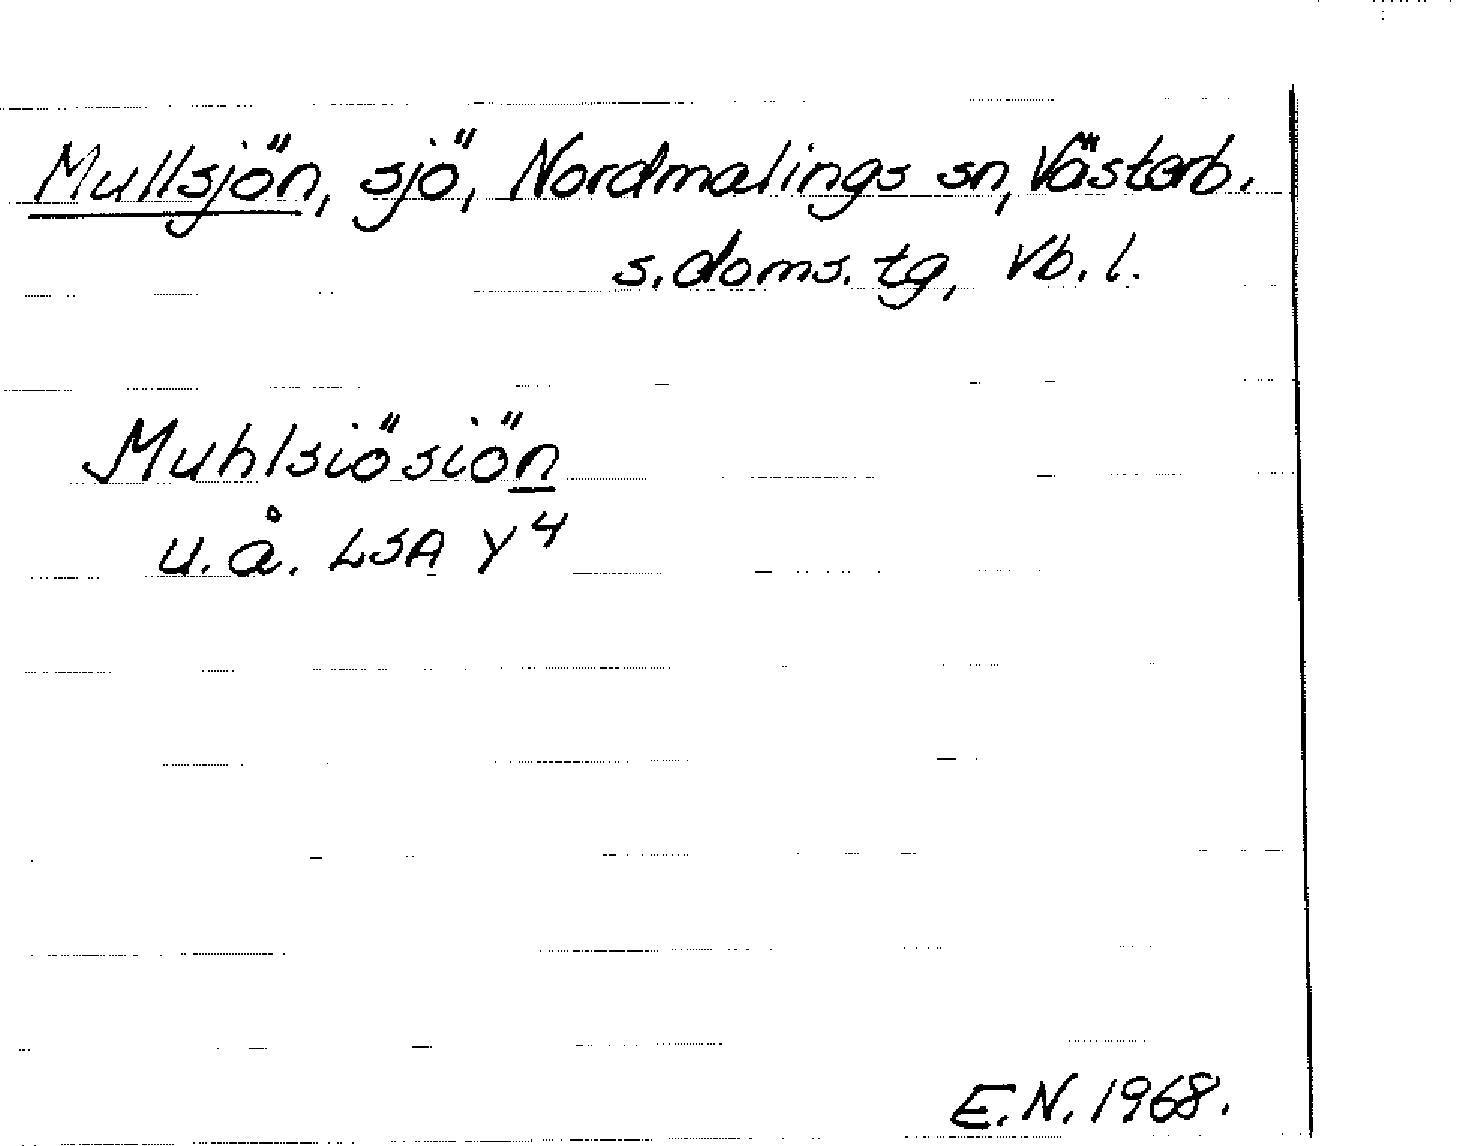 Mullsjön, sjö, Nordmalings sn, Västerb.
s. doms. tg, Vb. l.
Muhlsiösiön
u. å. LSA Y⁴
E. N. 1968.